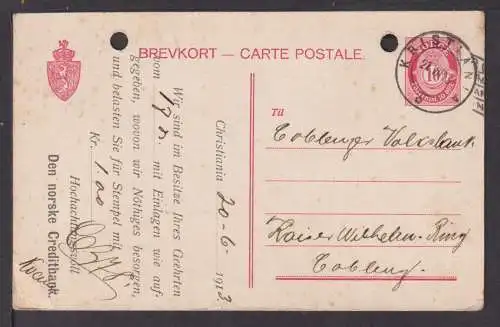 BREVKORT – CARTE POSTALE.
KRISTIANIA
10
Til
Coblenzer Volksbank
Kaiser Wilhelm-Ring
Coblenz.
Christiania 20-6- 1913
Wir sind im Besitze Ihres Geehrten
vom 19 cr. mit Einlagen wie auf-
gegeben, wovon wir Nöthiges besorgen,
und belasten Sie für Stempel mit
Kr. 1.00
Hochachtungsvoll
Den norske Creditbank.